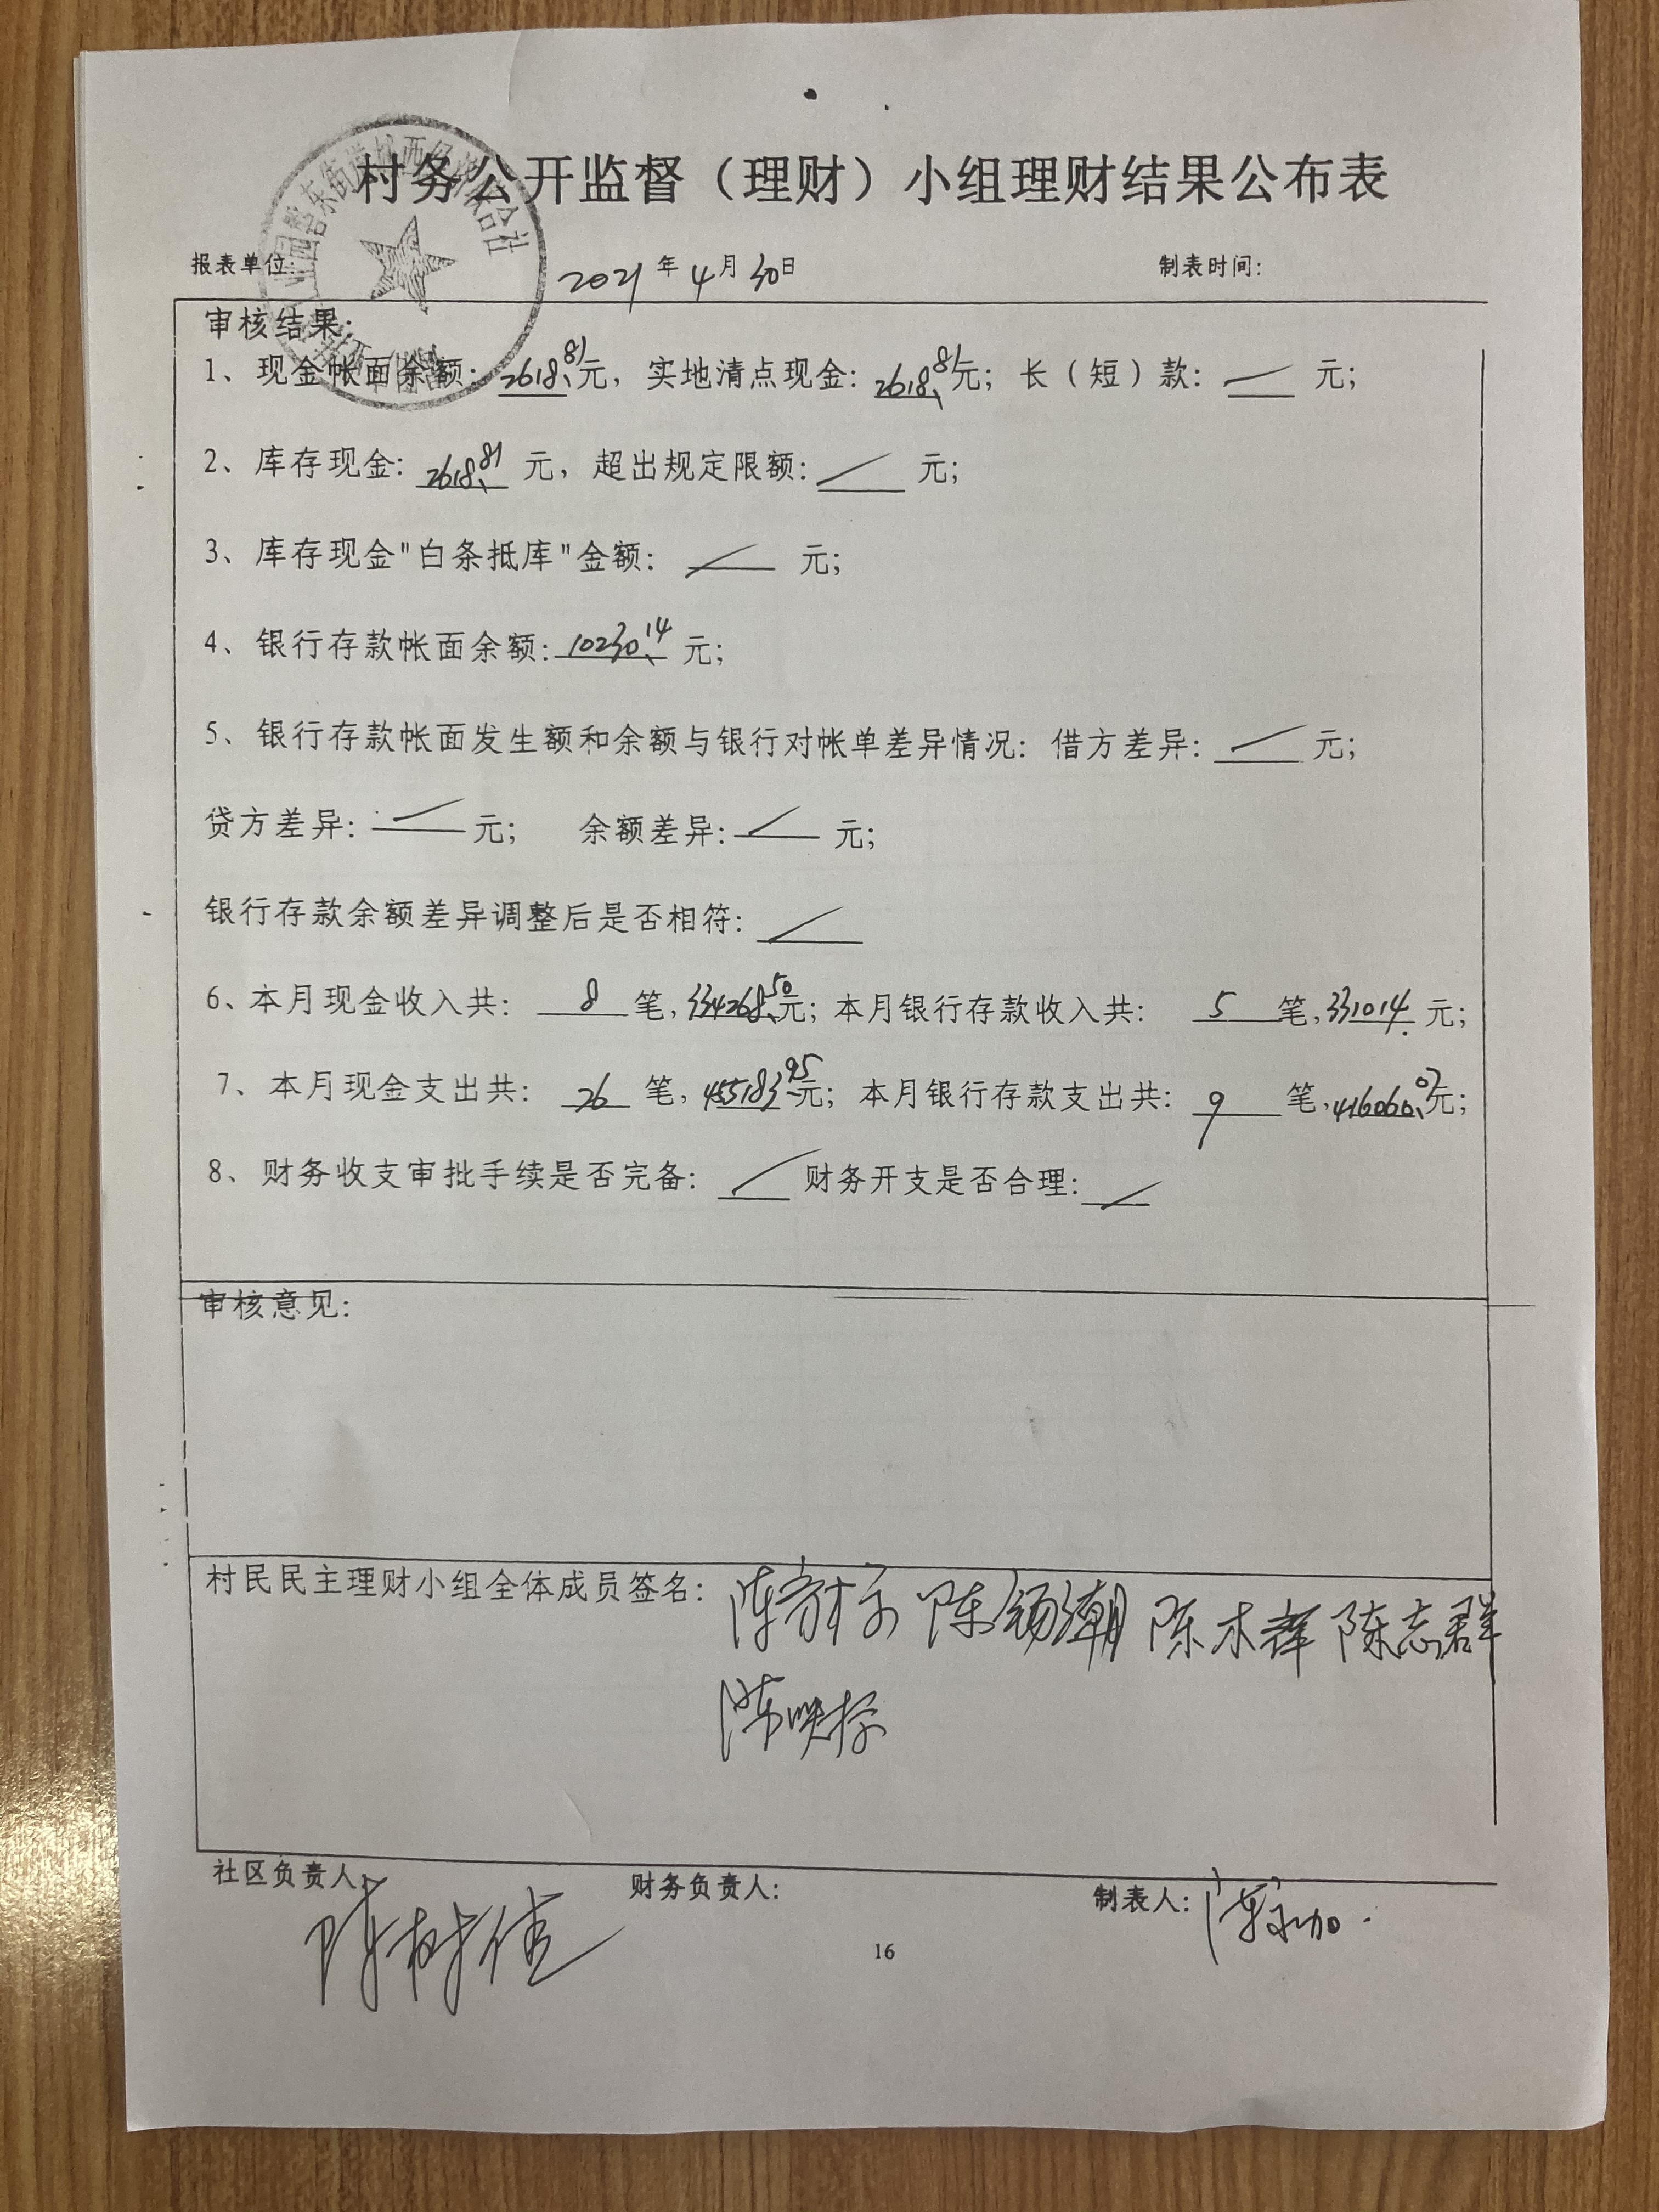 村务公开监督（理财）小组理财结果公布表
报表单位: 2021年4月30日 制表时间:
审核结果:
1、现金帐面余额: 2618.81元, 实地清点现金: 2618.81元; 长（短）款: ／ 元;
2、库存现金: 2618.81 元, 超出规定限额: ／ 元;
3、库存现金"白条抵库"金额: ／ 元;
4、银行存款帐面余额: 10230.14 元;
5、银行存款帐面发生额和余额与银行对帐单差异情况: 借方差异: ／ 元;
贷方差异: ／ 元; 余额差异: ／ 元;
银行存款余额差异调整后是否相符: ／
6、本月现金收入共: 8 笔, 334268.50元; 本月银行存款收入共: 5 笔, 331014. 元;
7、本月现金支出共: 26 笔, 455183.95元; 本月银行存款支出共: 9 笔, 416060.07元;
8、财务收支审批手续是否完备: ／ 财务开支是否合理: ／
审核意见:
村民民主理财小组全体成员签名: 陈锡潮 陈木群 陈志群
社区负责人: 陈树佳 财务负责人: 制表人:
16